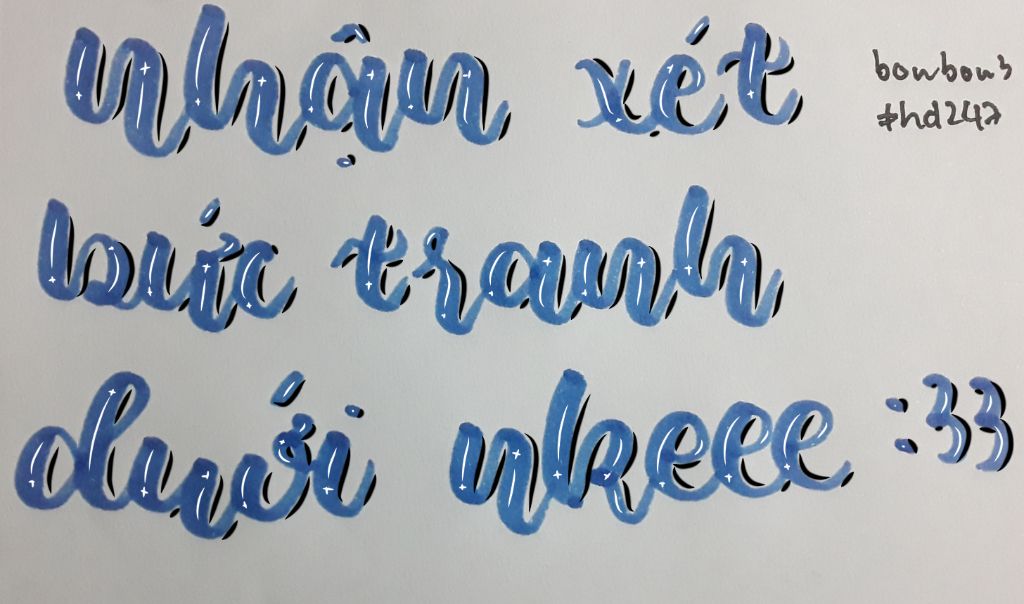 nhận xét
bowbow3
#hd247
bức tranh
dưới nkeee :33